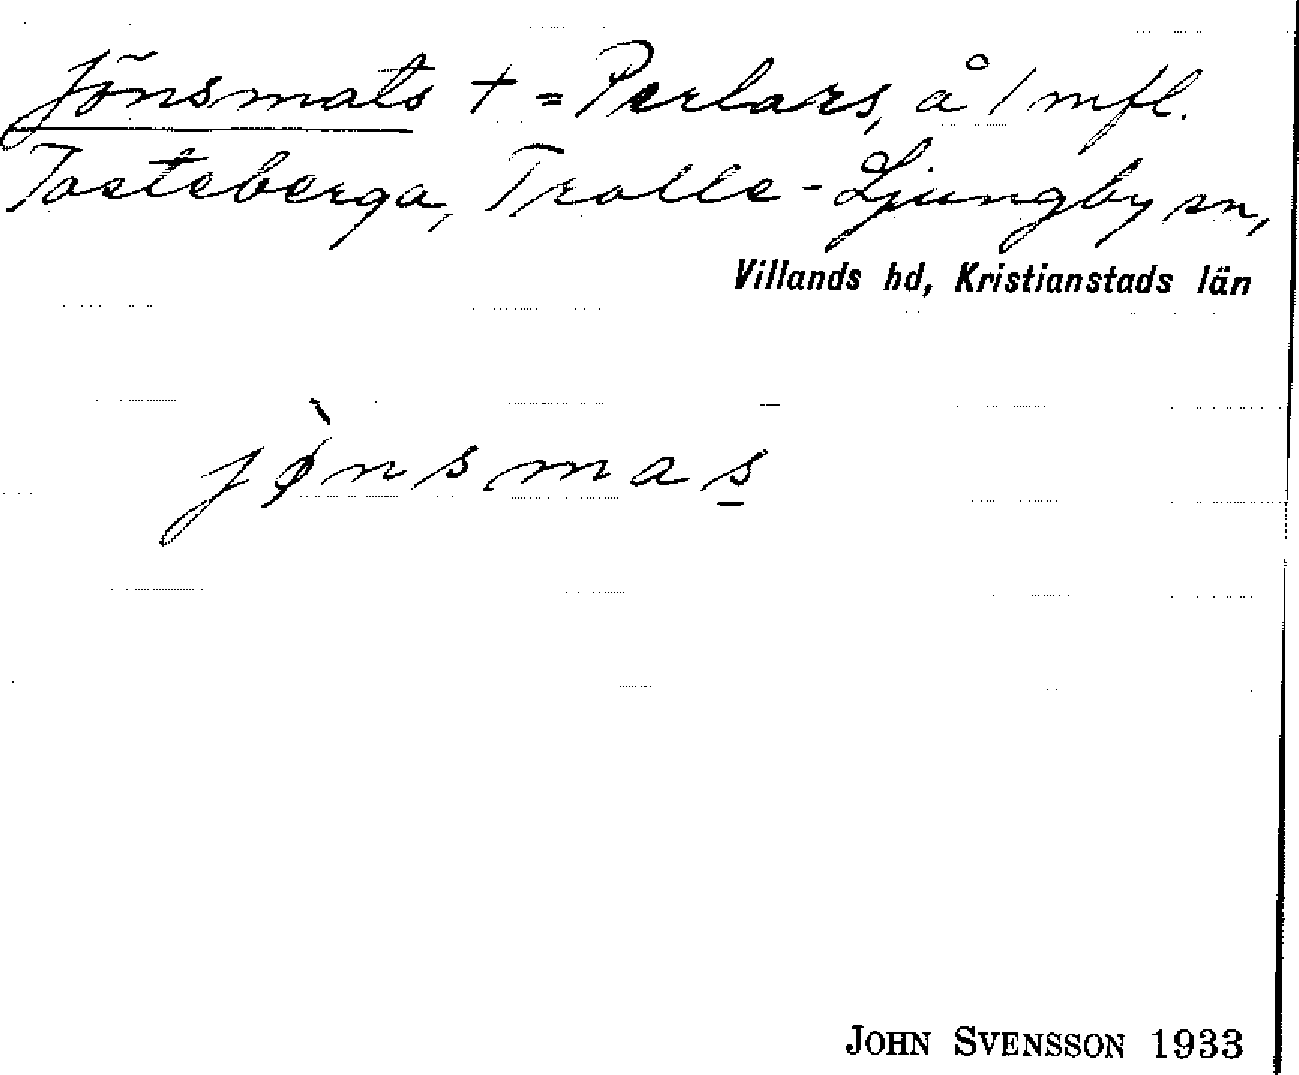 Jönsmats + = Perlars, å 1 mfl.
Tosteberga, Trolle-Ljungby sn,
Villands hd, Kristianstads län
jø̀nsmas̲
JOHN SVENSSON 1933